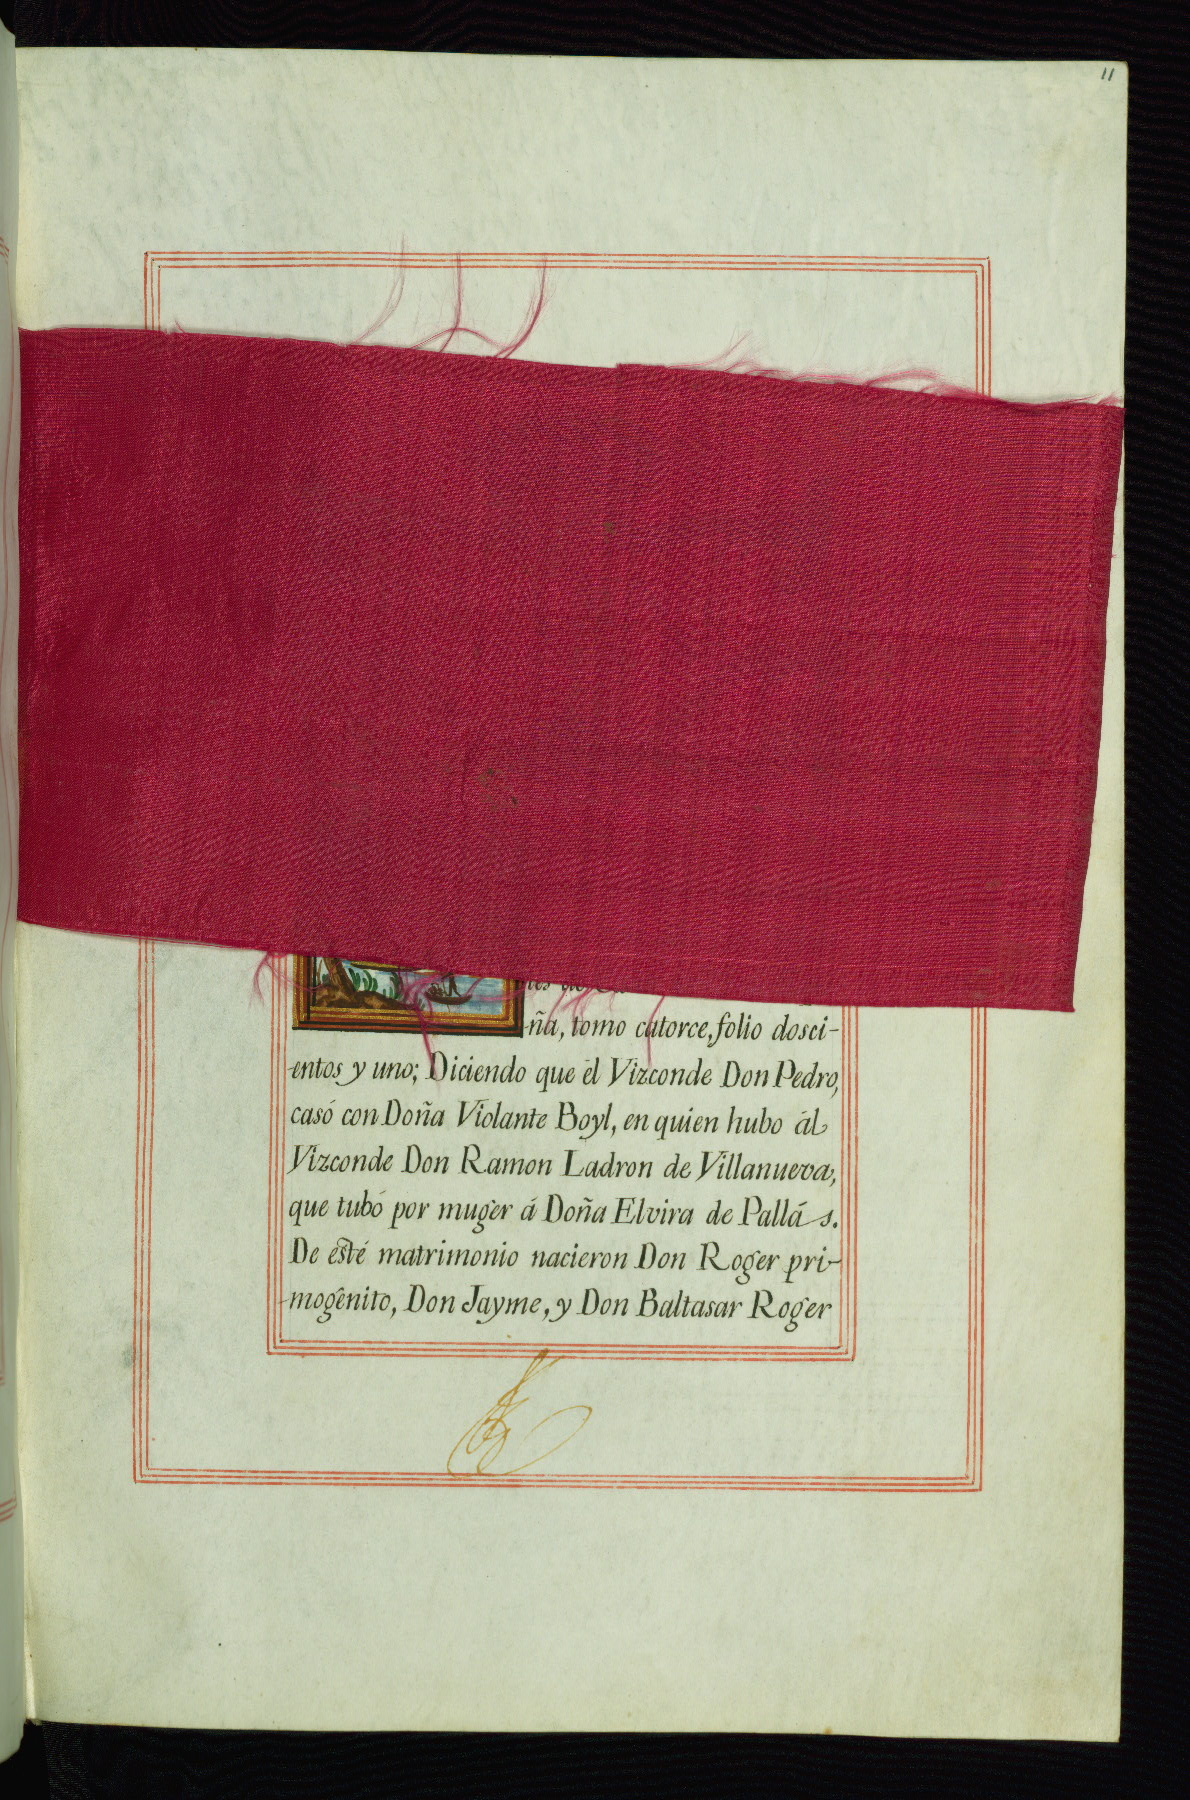 11
ña, tomo catorce, folio dosci-
entos y uno; Diciendo que él Vizconde Don Pedro,
casó con Doña Violante Boyl, en quien hubo ál
Vizconde Don Ramon Ladron de Villanueva,
que tubó por muger á Doña Elvira de Pallás.
De esté matrimonio nacieron Don Roger pri-
mogenito, Don Jayme, y Don Baltasar Roger